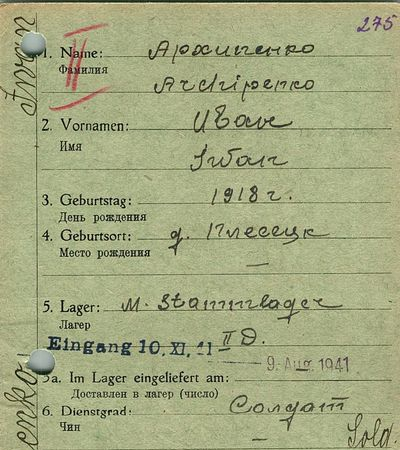 275
II
1. Name: Архипенко
Фамилия
Archipenko
2. Vornamen: Иван
Имя
Iwan
3. Geburtstag: 1918 г.
День рождения
4. Geburtsort: д. Плесецк
Место рождения
—
5. Lager: M. Stammlager
Лагерь
II D.
Eingang 10. XI. 41
9. Aug. 1941
5a. Im Lager eingeliefert am:
Доставлен в лагер (число)
6. Dienstgrad: Солдат
Чин
— Sold.
Iwan
enko